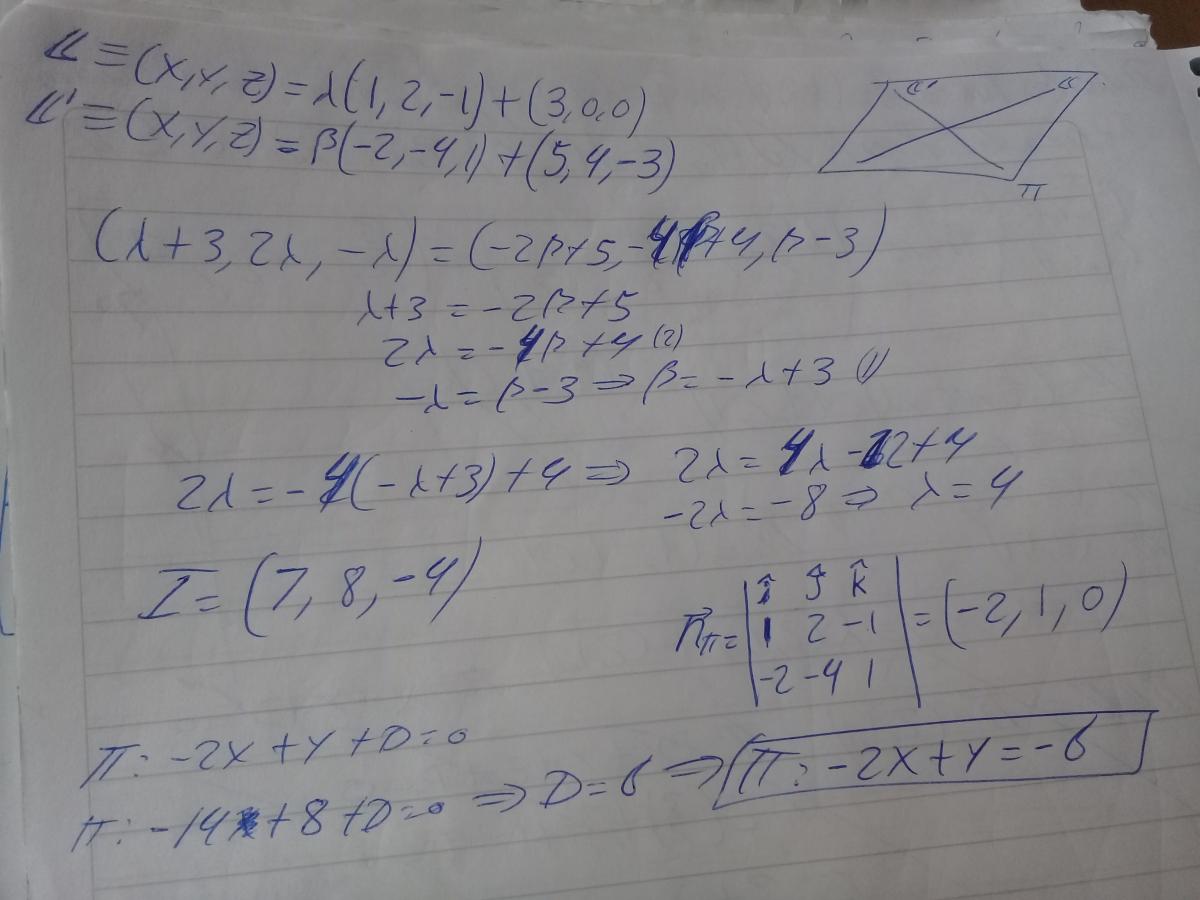 𝕃 ≡ (X, Y, Z) = λ(1, 2, -1) + (3, 0, 0)
𝕃' ≡ (X, Y, Z) = β(-2, -4, 1) + (5, 4, -3)
𝕃' 𝕃
π
(λ+3, 2λ, -λ) = (-2β+5, -4β+4, β-3)
λ+3 = -2β+5
2λ = -4β+4 (2)
-λ = β-3 ⇒ β = -λ+3 (1)
2λ = -4(-λ+3)+4 ⇒ 2λ = 4λ-12+4
-2λ = -8 ⇒ λ = 4
I = (7, 8, -4)
n⃗π = | î ĵ k̂ |
| 1 2 -1 | = (-2, 1, 0)
| -2 -4 1 |
π: -2X + Y + D = 0
π: -14 + 8 + D = 0 ⇒ D = 6 ⇒ π: -2X + Y = -6